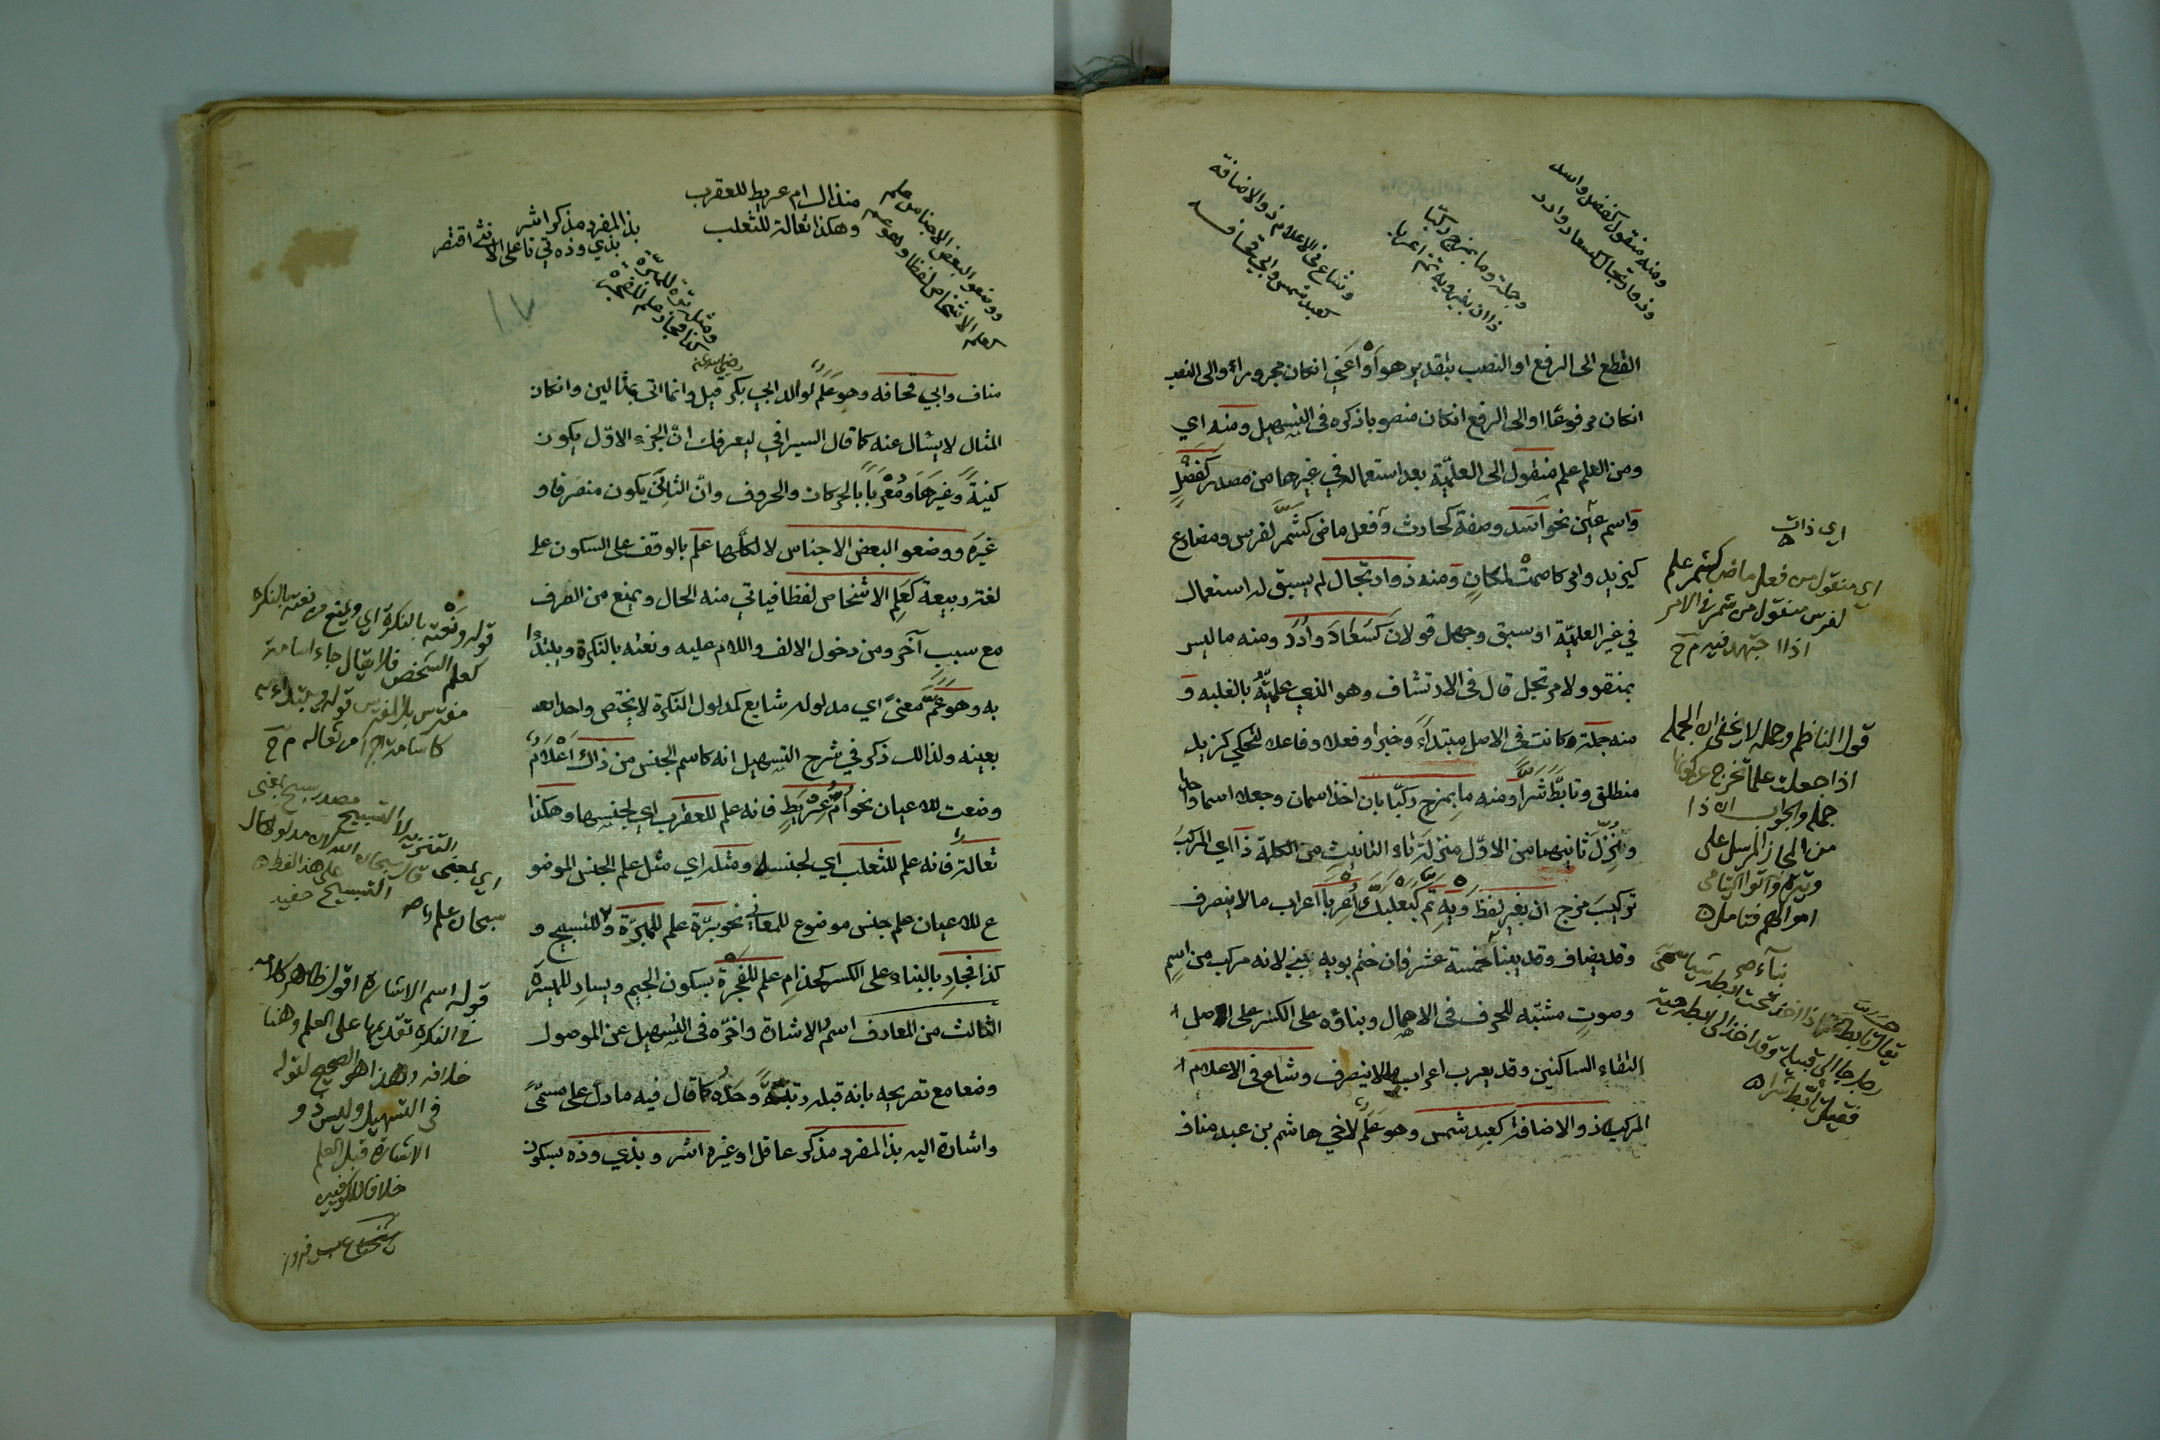 ومنه منقول كفضل واسد
وذو ارتجال كسعاد وادد
وجملة وما بمزج ركبا
ذا ان بغير ويه تم اعربا
وشاع في الاعلام ذو الاضافة
كعبد شمس وابي قحافه
القطع الى الرفع او النصب بتقدير هو أو أعني انكان مجرورا و الى النصب
انكان مرفوعًا او الى الرفع انكان منصوبا ذكره في التسهيل ومنه اي
ومن العلم علم منقول الى العلميّة بعد استعماله في غيرها من مصدر كفضل
واسم عين نحو اسد وصفة كحارث وفعل ماض كشمّر لفرس ومضارع
كيزيد وامر كاصمت لمكان ومنه ذو ارتجال لم يسبق له استعمال
في غير العلميّة او سبق وجهل قولان كسعاد وأدد ومنه ما ليس
بمنقو ولا مرتجل قال في الارتشاف وهو الذي علميّته بالغلبه و
منه جملة كانت في الاصل مبتداءً وخبرا او فعلا وفاعلا فتحكي كزيد
منطلق وتابّط شرا ومنه ما بمزج ركبّا بان اخذ اسمان وجعلا اسما واحدا
ونزّل ثانيهما من الاوّل منزلة تاء التانيث من الكلمة ذا اي المركب
تركيب مزج ان بغير لفظ ويه تم كبعلبك أعربا اعراب ما لا ينصرف
وقد يضاف وقد يبنا كخمسة عشر فان ختم بويه بني لانه مركب من اسم
وصوت مشبّه للحرف في الاهمال وبناؤه على الكسر على اصل ا
التقاء الساكنين وقد يعرب اعراب ما لا ينصرف وشاع في الاعلام ا
المركبة ذو الاضافة كعبد شمس وهو علم لاخي هاشم بن عبد مناف
اي ذات
اي منقول من فعل ماض كشمر علم
لفرس منقول من شمر في الامر
اذا اجتهد فيه م ح
قول الناظم وجملة لا يخفى ان الجمله
اذا جعلت علما تخرج عن كونها
جملة والجواب ان ذا
من المجاز المرسل على
وتيرة وآتوا اليتامى
اموالهم فتامل
فقيل تأبط شرا
ووضعوا لبعض الاجناس علم
كعلم الاشخاص لفظا وهو عم
من ذاك ام عريط للعقرب
وهكذا ثعالة للثعلب
ومثله برّة للمبرّة
كذا فجار علم للفجرة
بذا لمفرد مذكر اشر
بذي وذه تي تا على الانثى اقتصر
رضي الله عنه
مناف وابي قحافه وهو علم لوالد ابي بكر قيل وانما اتى بمثالين وانكان
المثال لا يسال عنه كما قال السيرافي ليعرفك انّ الجزء الاوّل يكون
كنيةً وغيرها ومعربا بالحركات والحروف وانّ الثاني يكون منصرفا و
غيره ووضعوا لبعض الاجناس لا لكلّها علم بالوقف على السكون على
لغة ربيعة كعلم الاشخاص لفظا فياتي منه الحال ويمنع من الصرف
مع سبب آخر ومن دخول الالف واللام عليه ونعته بالنكرة ويبتدا
به وهو عمّ معنىً اي مدلوله شايع كمدلول النكرة لا يختص واحدا
بعينه ولذالك ذكر في شرح التسهيل انه كاسم الجنس من ذاك أعلام
وضعت للاعيان نحو أم عريط فانه علم للعقرب اي لجنسها وهكذا
ثعالة فانه علم للثعلب اي لجنسه ومثله اي مثل علم الجنس الموضو
ع للاعيان علم جنس موضوع للمعاني نحو برّة علم للمبرّة و للتسبيح و
كذا فجار بالبناء على الكسر كحذام علم للفجرة بسكون الجيم ويسار للميسرة
الثالث من المعارف اسم الاشارة واخّره في التسهيل عن الموصول
وضعا مع تصريحه بانه قبله رتبة وحدّه كما قال فيه ما دل على مسمّى
واشارة اليه بذا لمفرد مذكر عاقل او غيره اشر وبذي وذه بسكون
قوله ونعته بالنكرة اي ويمنع من نعته بالنكرة
كعلم الشخص فلا يقال جاء اسامة
مفترس بل المفترس قوله ويبتداء به
سبحان علم
قوله اسم الاشارة اقول ظاهر كلامه
في النكرة تقديمها على العلم وهنا
خلافه وهذا هو الصحيح لقوله
في التسهيل وليس ذو
الاشارة قبل العلم
خلافا للكوفيين